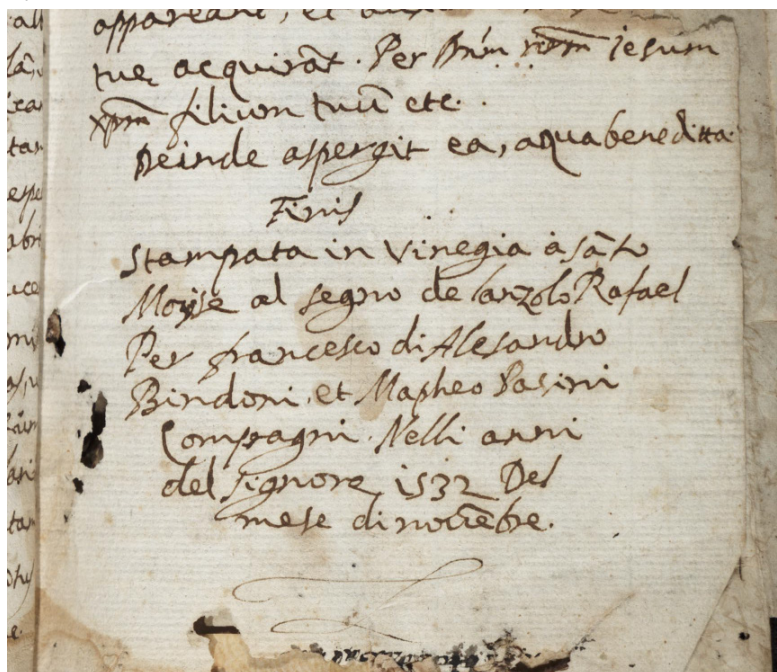 appareant, et
tue acquirāt. Per Dn̄m nr̄m iesum
xp̄m filium tuū etc.
Deinde aspergit ea, aqua beneditta.
Finis
Stampata in Vinegia à sāto
Moyse al segno de lanzolo Rafael
Per francesco di Alesandro
Bindoni, et Mapheo Pasini
Compagni. Nelli anni
del signore, 1532 Del
mese di nouēbre.